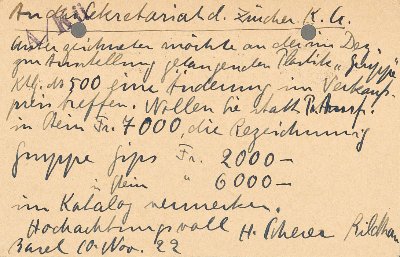 An d. Sekretariat d. Zürcher K. G.
A/Kü
Unterzeichneter möchte an deinem Dez.
zur Ausstellung gelangenden Plastik „Gruppe"
Ktlg. No 500 eine Änderung im Verkaufs-
preis treffen. Wollen Sie statt
in Stein Fr. 7000, die Bezeichnung
Gruppe Gips Fr. 2000 –
in Stein " 6000 –
im Katalog vermerken.
Hochachtungsvoll H. Scherer Bildhau
Basel 10. Nov. 22